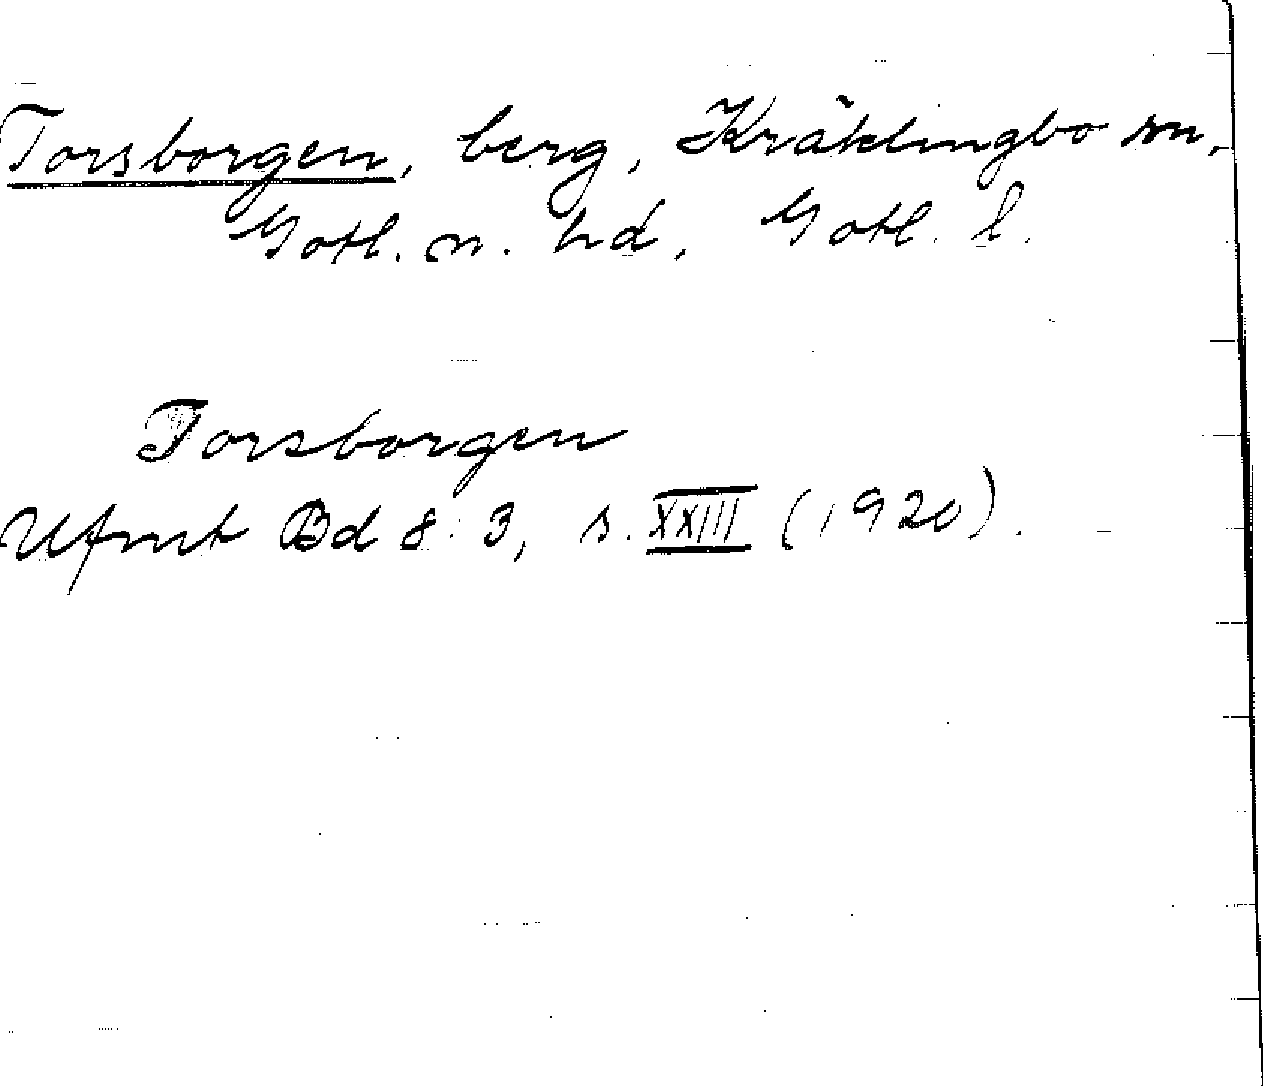 Torsborgen, berg, Kräklingbo sn,
Gotl. n. hd, Gotl. l.
Torsborgen
Ufmt Bd 8:3, s. XXIII (1920).